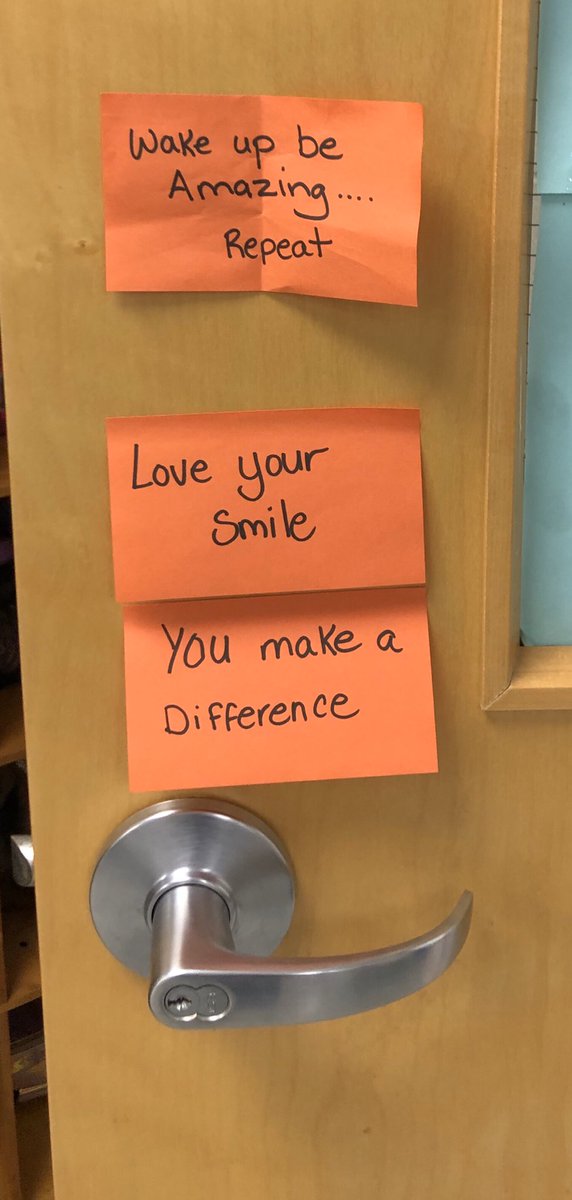 Wake up be
Amazing....
Repeat
Love your
Smile
You make a
Difference